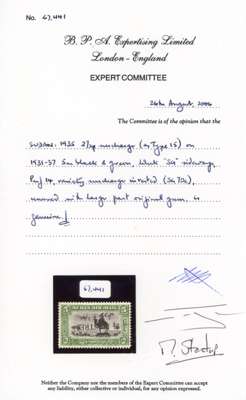 No. 67,441
B. P. A. Expertising Limited
London - England
EXPERT COMMITTEE
24th August, 2006
The Committee is of the opinion that the
1935 2/- surcharge (as Type 15) on
1931-37 black & green, wmk sideways
Perf 14, variety surcharge inverted
unused with large part original gum, is
genuine
67,441
Neither the Company nor the members of the Expert Committee can accept
any liability, either collective or individual, for any opinion expressed.